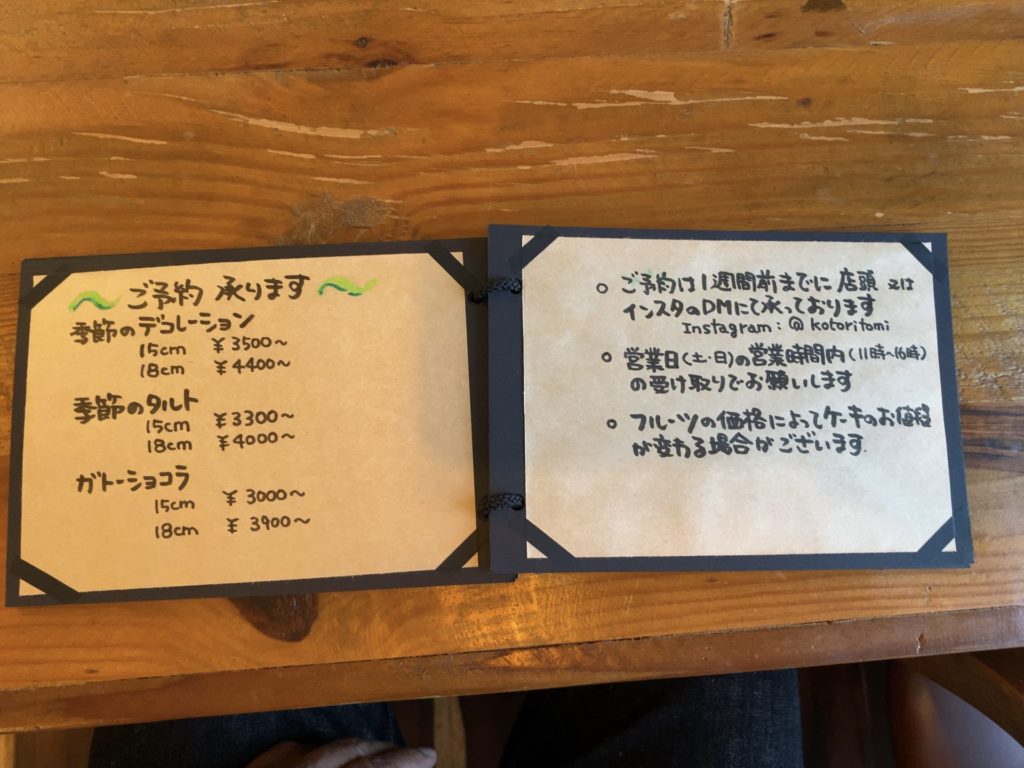 ご予約 承ります
季節のデコレーション
15cm ¥3500〜
18cm ¥4400〜
季節のタルト
15cm ¥3300〜
18cm ¥4000〜
ガトーショコラ
15cm ¥3000〜
18cm ¥3900〜
○ ご予約は1週間前までに店頭 又は
インスタのDMにて承っております
Instagram : @kotoritomi
○ 営業日(土・日)の営業時間内(11時〜16時)
の受け取りでお願いします
○ フルーツの価格によってケーキのお値段
が変わる場合がございます.